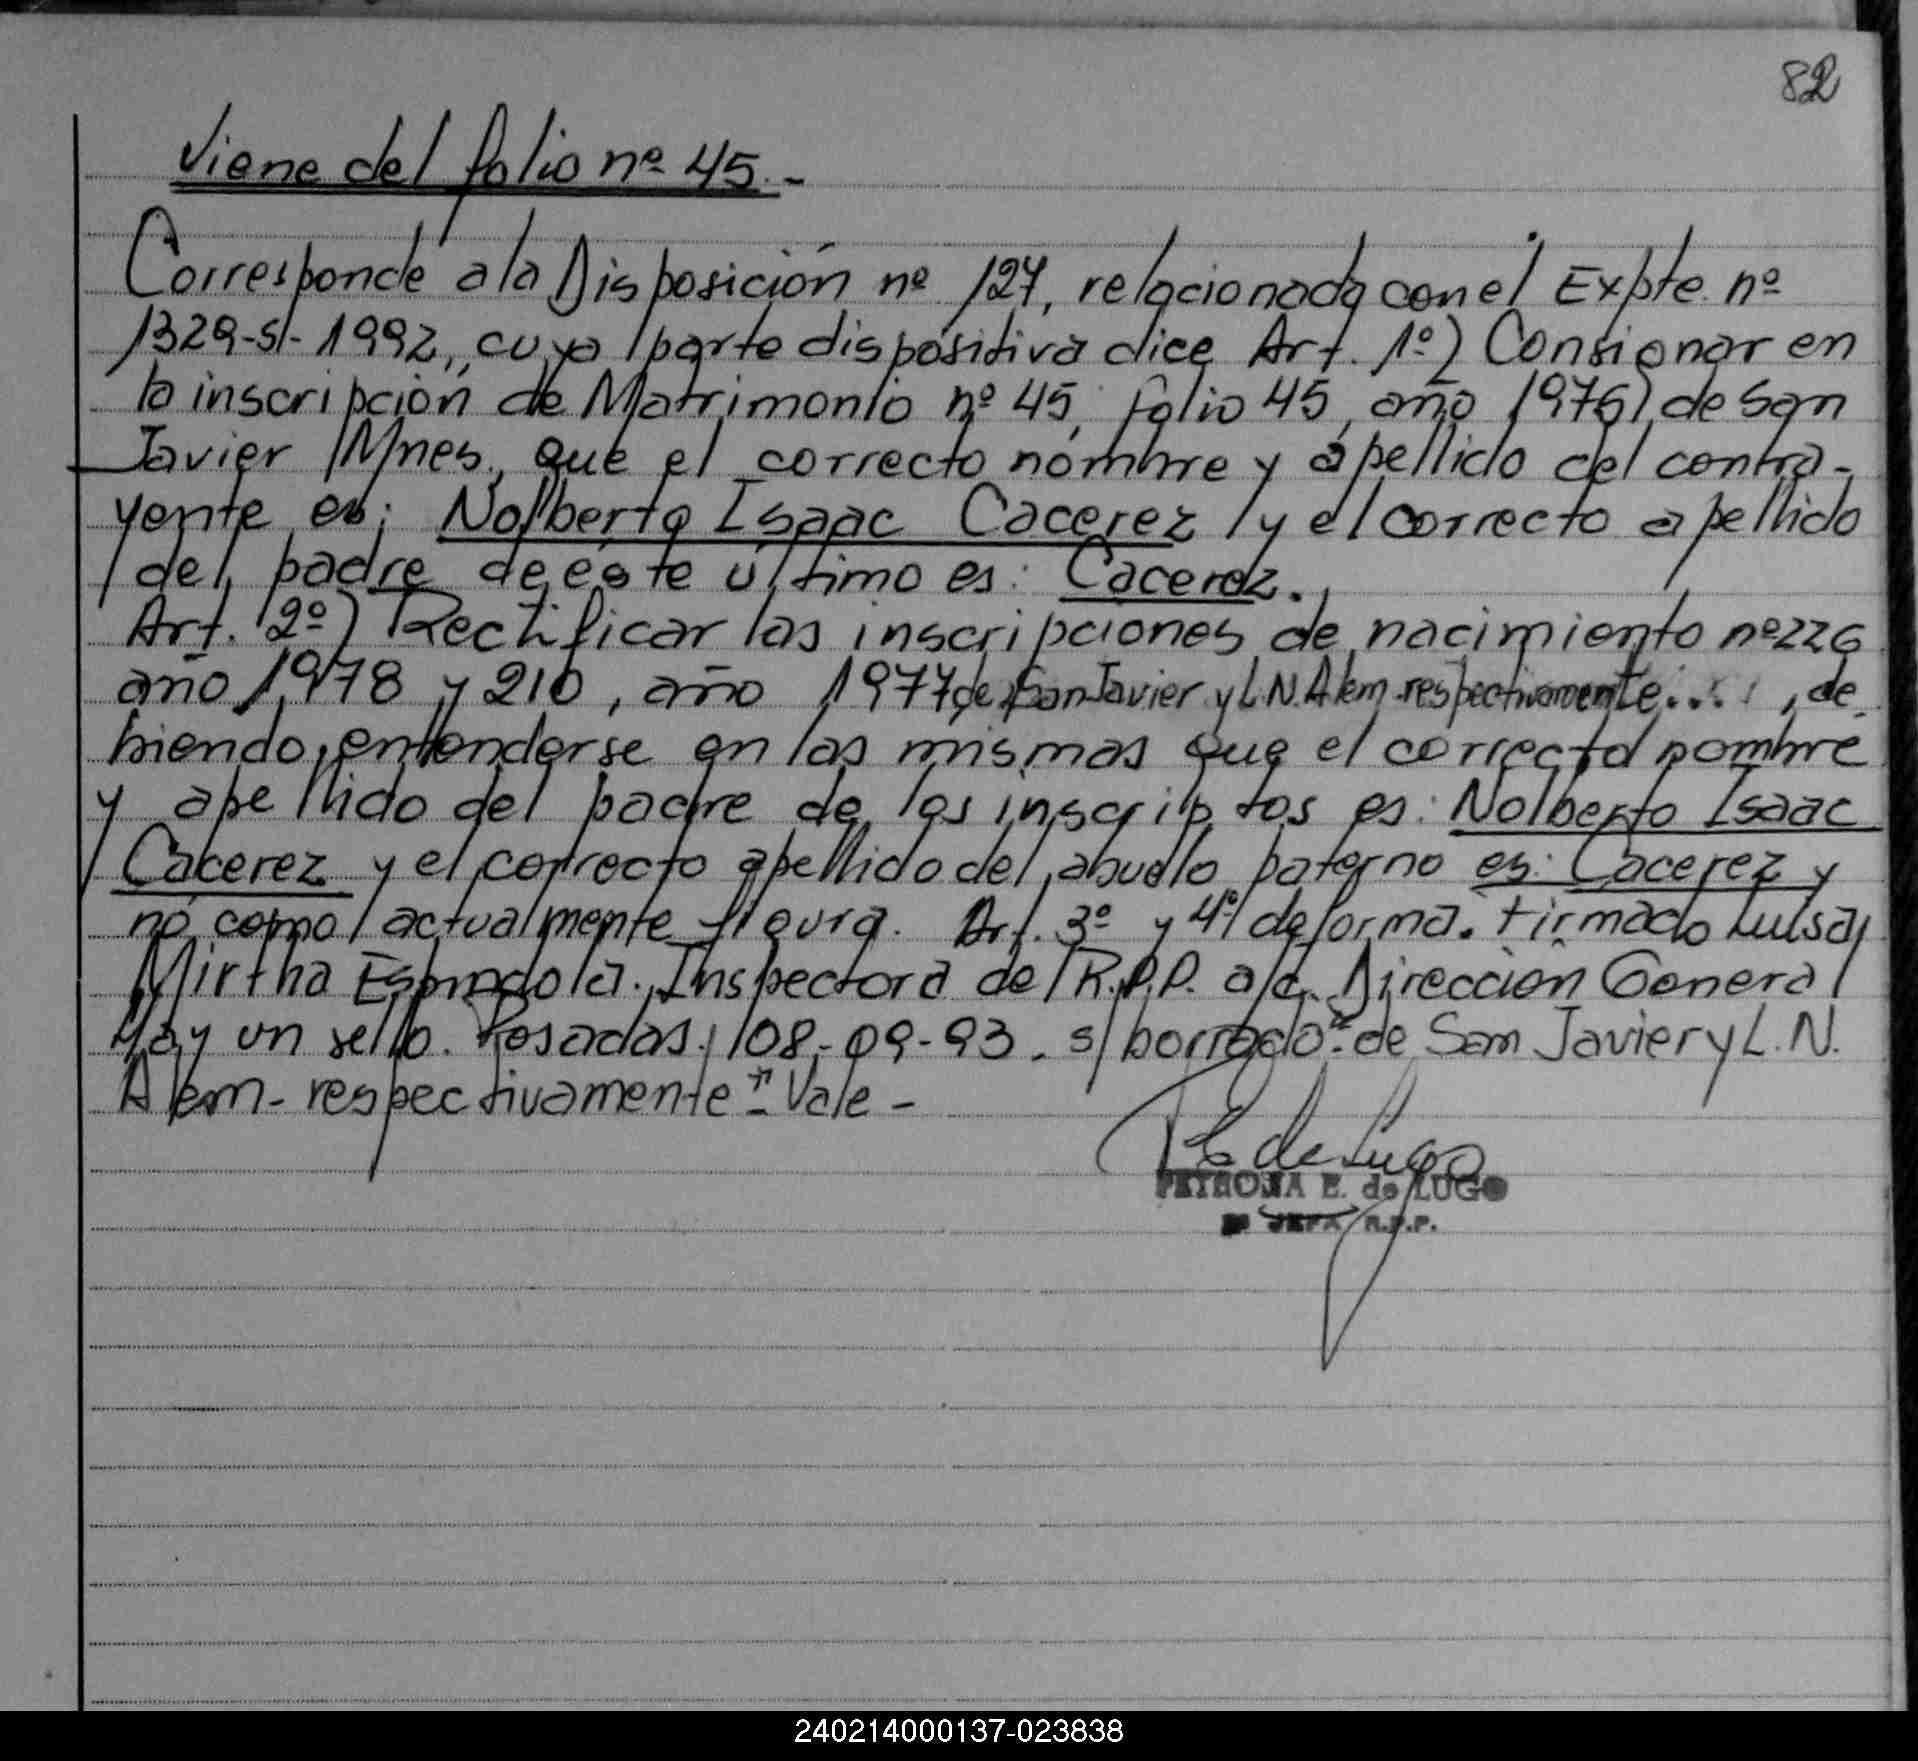 82
Viene del folio nº 45.-
Corresponde a la Disposición nº 127, relacionada con el Expte. nº
1329-S-1992, cuya parte dispositiva dice Art. 1º) Consignar en
la inscripción de Matrimonio nº 45, folio 45, año 1976, de San
Javier Mnes., que el correcto nombre y apellido del contra-
yente es: Nolberto Isaac Cacerez y el correcto apellido
del padre de este último es: Cacerez.
Art. 2º) Rectificar las inscripciones de nacimiento nº 226
año 1978 y 210, año 1977 de San Javier y L.N. Alem-respectivamente..., de
biendo entenderse en las mismas que el correcto nombre
y apellido del padre de los inscriptos es: Nolberto Isaac
Cacerez y el correcto apellido del abuelo paterno es: Cacerez y
no como actualmente figura. Art. 3º y 4º de forma. Firmado Luisa
Mirtha Espindola. Inspectora de R.P.P. a/c. Dirección General
Hay un sello. Posadas, 08-09-93. s/borrado "de San Javier y L.N.
Alem-respectivamente"- Vale-
P E de Lugo
PETRONA E. de LUGO
JEFA R.P.P.
240214000137-023838